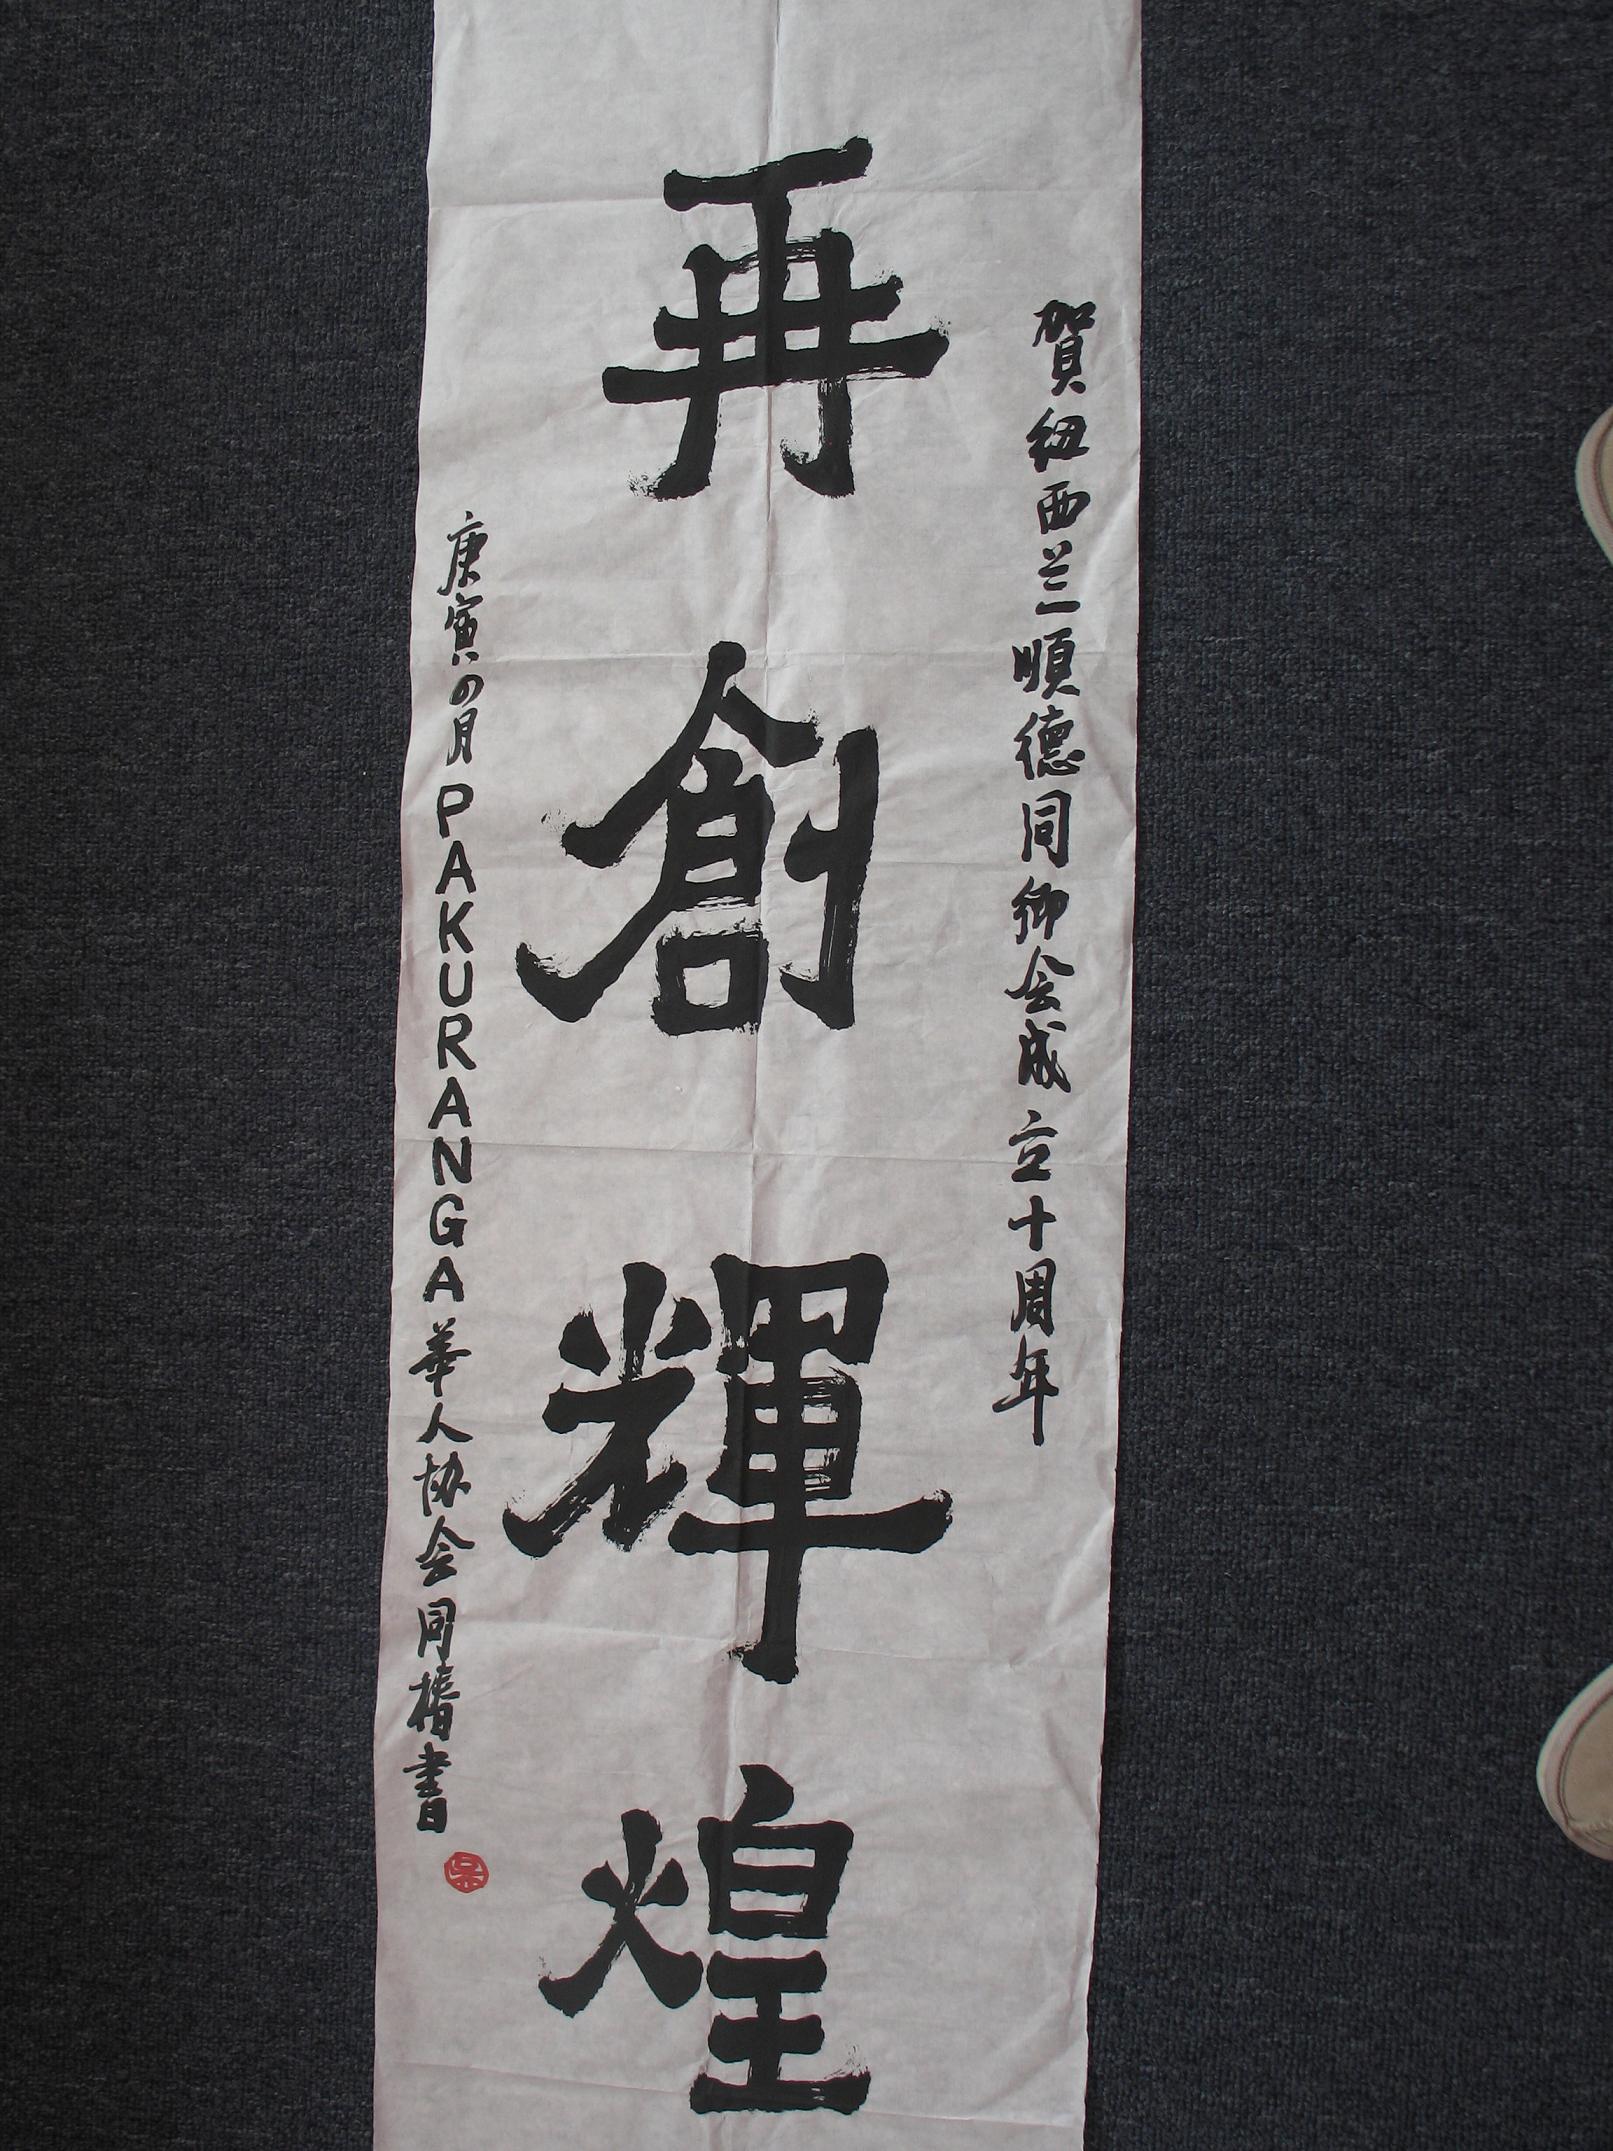 賀紐西兰順德同鄉会成立十周年
再創輝煌
庚寅四月PAKURANGA華人协会同楮書
吴